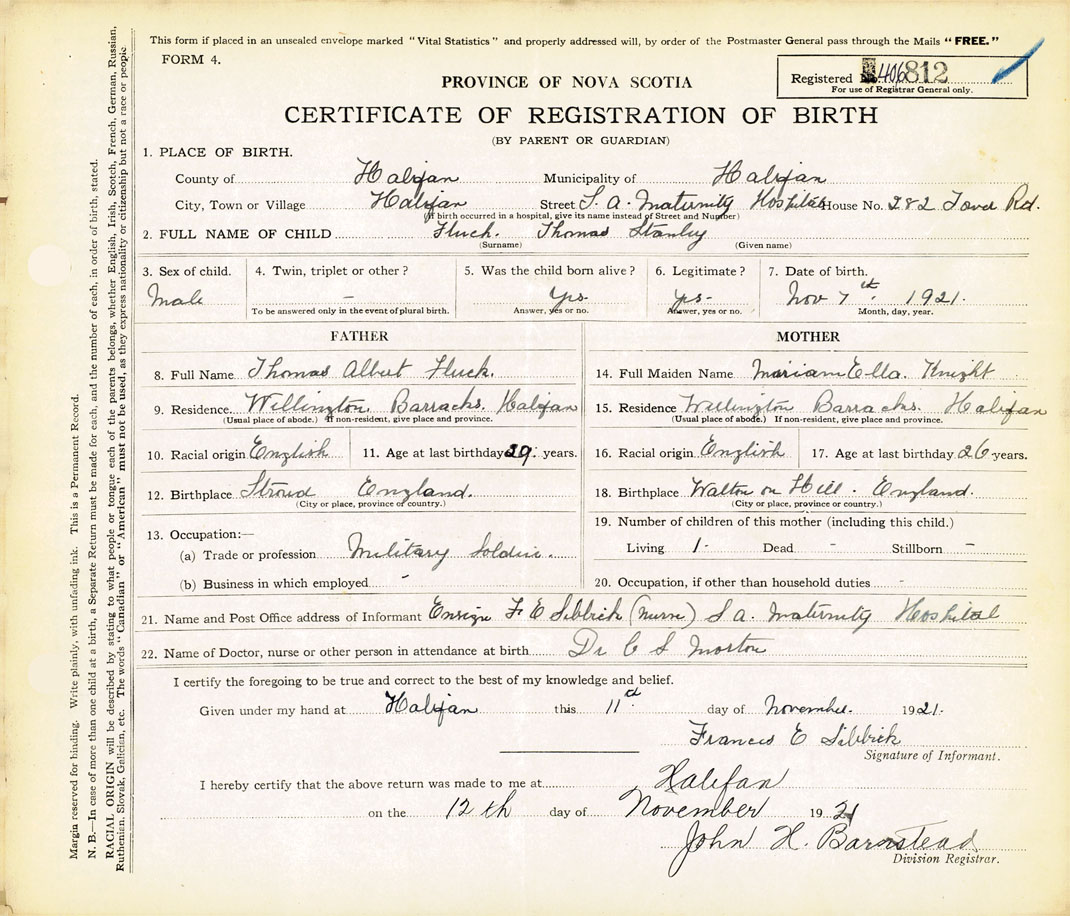 This form if placed in an unsealed envelope marked "Vital Statistics" and properly addressed will, by order of the Postmaster General pass through the Mails "FREE."
FORM 4.
PROVINCE OF NOVA SCOTIA
Registered No. 406812
For use of Registrar General only.
CERTIFICATE OF REGISTRATION OF BIRTH
(BY PARENT OR GUARDIAN)
1. PLACE OF BIRTH.
County of Halifax Municipality of Halifax
City, Town or Village Halifax Street S. A. Maternity Hospital House No. 282 Tower Rd.
(If birth occurred in a hospital, give its name instead of Street and Number)
2. FULL NAME OF CHILD Fluck. Thomas Stanley
(Surname) (Given name)
3. Sex of child. 4. Twin, triplet or other? 5. Was the child born alive? 6. Legitimate? 7. Date of birth.
Male - Yes. Yes- Nov 7th. 1921.
To be answered only in the event of plural birth. Answer, yes or no. Answer, yes or no. Month, day, year.
FATHER MOTHER
8. Full Name Thomas Albert Fluck. 14. Full Maiden Name Miriam Ella. Knight
9. Residence Wellington Barracks. Halifax 15. Residence Wellington Barracks. Halifax
(Usual place of abode.) If non-resident, give place and province. (Usual place of abode.) If non-resident, give place and province.
10. Racial origin English 11. Age at last birthday 29. years. 16. Racial origin English 17. Age at last birthday 26 years.
12. Birthplace Stroud England. 18. Birthplace Walton on Hill. England.
(City or place, province or country.) (City or place, province or country.)
13. Occupation:— 19. Number of children of this mother (including this child.)
(a) Trade or profession Military Soldier. Living 1. Dead - Stillborn -
(b) Business in which employed - 20. Occupation, if other than household duties -
21. Name and Post Office address of Informant Ensign F E Sibbick (Nurse) S A. Maternity Hospital
22. Name of Doctor, nurse or other person in attendance at birth Dr C S Morton
I certify the foregoing to be true and correct to the best of my knowledge and belief.
Given under my hand at Halifax this 11th day of November. 1921.
Francis E Sibbick
Signature of Informant.
I hereby certify that the above return was made to me at Halifax
on the 12th day of November 1921
John H. Barnstead
Division Registrar.
Margin reserved for binding. Write plainly, with unfading ink. This is a Permanent Record.
N. B.—In case of more than one child at a birth, a Separate Return must be made for each, and the number of each, in order of birth, stated.
RACIAL ORIGIN will be described by stating to what people or tongue each of the parents belongs, whether English, Irish, Scotch, French, German, Russian,
Ruthenian, Slovak, Galician, etc. The words "Canadian" or "American" must not be used, as they express nationality or citizenship but not a race or people.